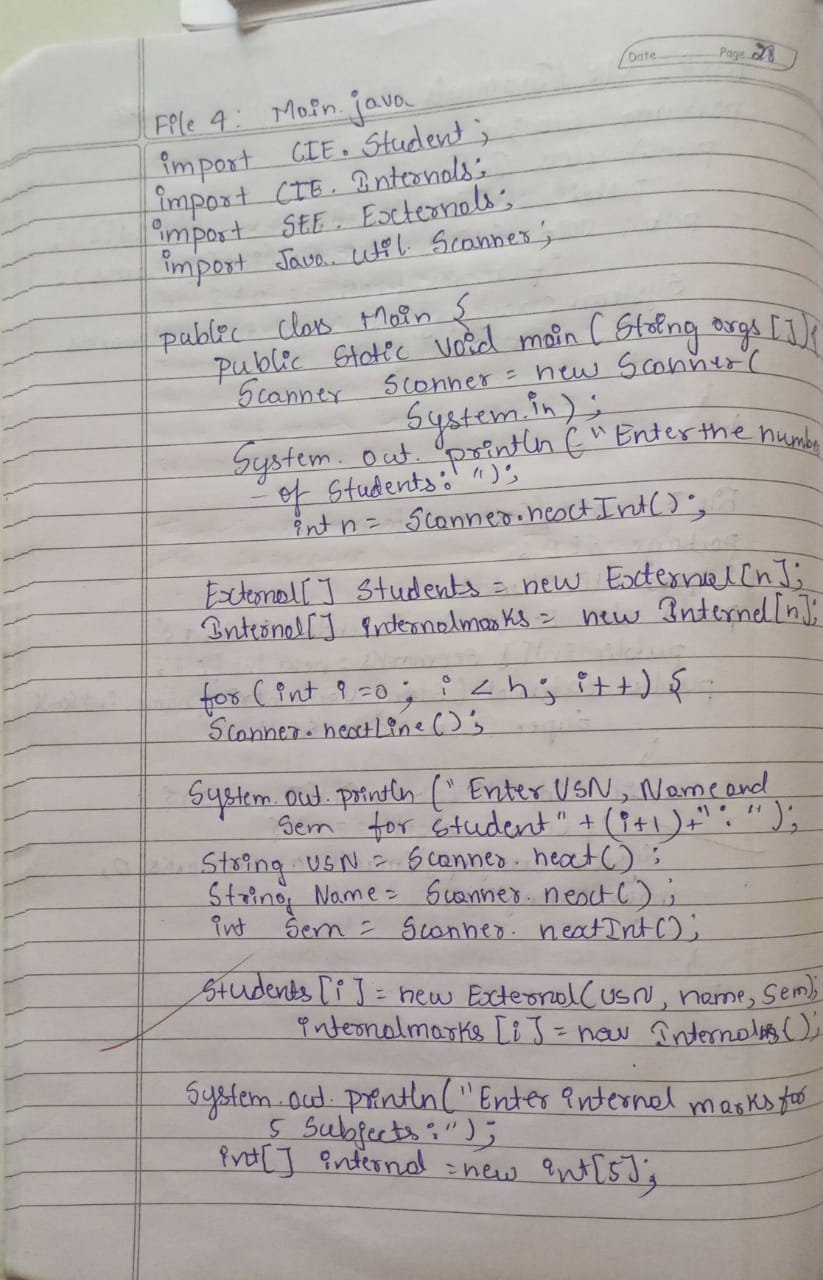 Date Page 28
File 4: Main.java
import CIE.Student;
import CIE.Internals;
import SEE.Externals;
import Java.util.Scanner;
public class Main {
public static void main (String args []){
Scanner Scanner = new Scanner(
System.in);
System.out.println ("Enter the number
- of Students: ");
int n = Scanner.nextInt();
External[] Students = new External[n];
Internal[] internalmarks = new Internel[n];
for (int i=0; i < n; i++) {
Scanner.nextLine();
System.out.println (" Enter USN, Name and
Sem for student" + (i+1)+": ");
String USN = Scanner.next();
String Name = Scanner.next();
int Sem = Scanner.nextInt();
Students [i] = new External(USN, name, Sem);
internalmarks [i] = new Internals();
System.out.println("Enter internal marks for
5 Subjects:");
int[] internal = new int[5];